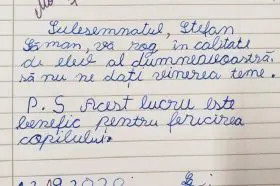 Subsemnatul, Ștefan
Șaman, vă rog în calitate
de elev al dumneavoastră,
să nu ne dați vinerea teme.
P.S Acest lucru este
benefic pentru fericirea
copilului.